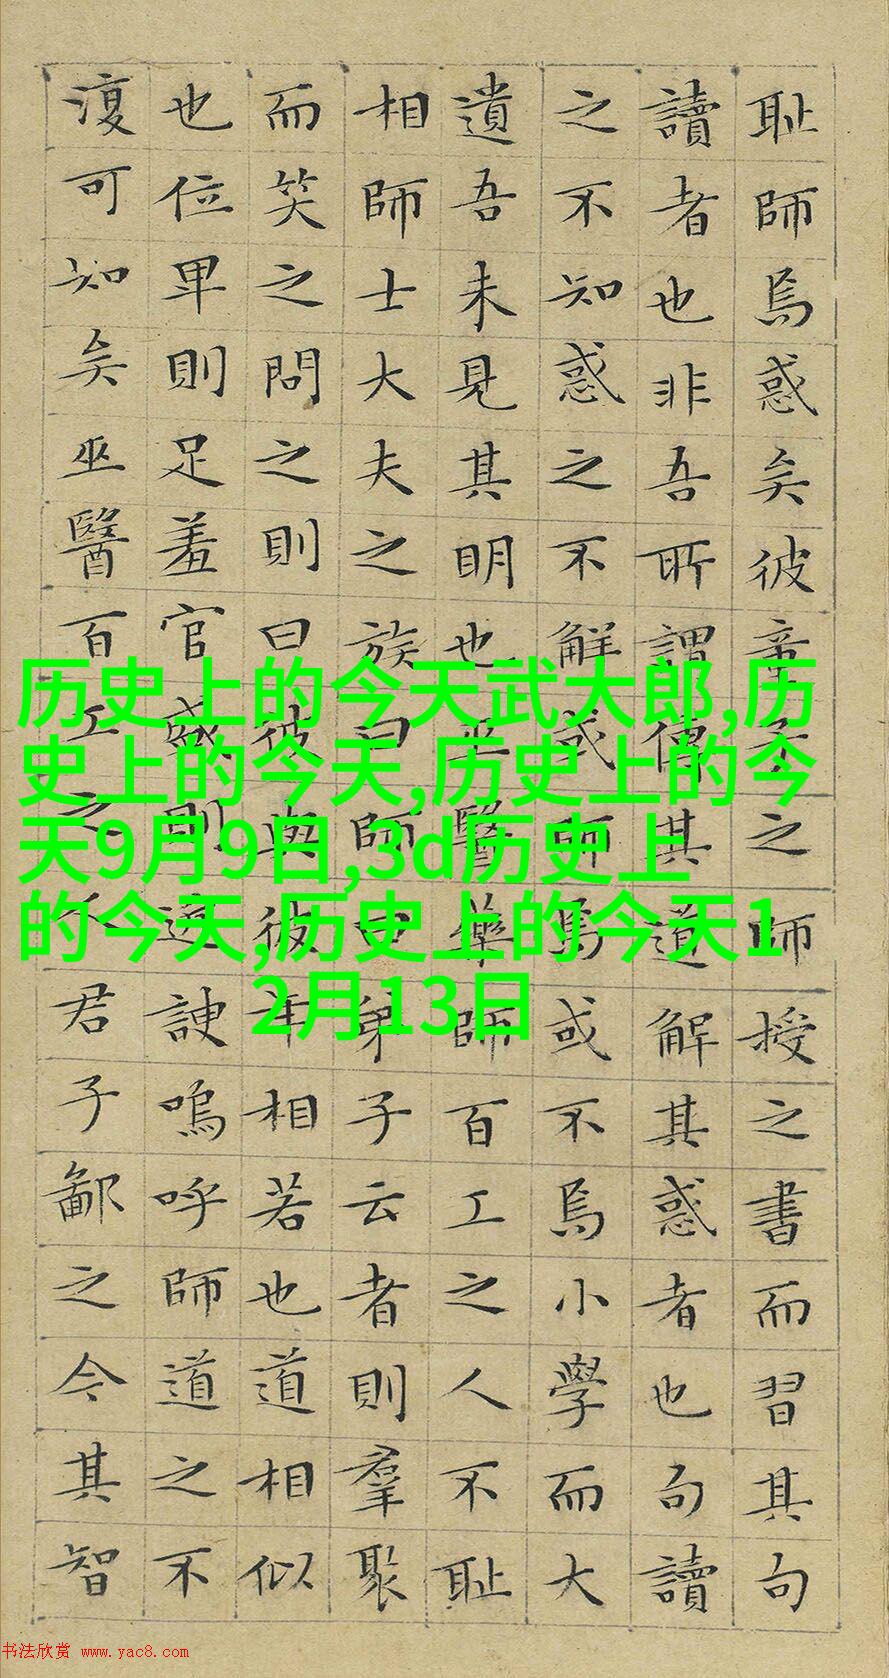 耻師焉惑矣彼童子之師授之書而習其句
讀者也非吾所謂傳其道解其惑者也句讀
之不知惑之不解或師焉或不焉小學而大
遺吾未見其明也巫醫藥師百工之人不耻
相師士大夫之族曰師曰弟子云者則羣聚
而笑之問之則曰彼與彼年相若也道相似
也位卑則足羞官盛則近諛嗚呼師道之不
復可知矣巫醫百工之人君子鄙之今其智
历史上的今天武大郎,历
史上的今天,历史上的今
天9月9日,3d历史上
的今天,历史上的今天1
2月13日
书法欣赏 www.yac8.com